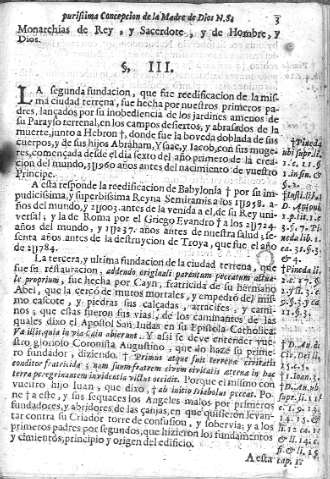 purissima Concepcion de la Madre de Dios N.Sa 3
Monarchias de Rey, y Sacerdote, y de Hombre, y
Dios.
§. III.
LA segunda fundacion, que fue reedificacion de la mis-
ma ciudad terrena, fue hecha por nuestros primeros pa-
dres, lançados por su inobediencia de los jardines amenos de
su Parayso terrenal, en los campos desiertos, y abrasados de la
muerte, junto a Hebron †, donde fue la boveda doblada de sus
cuerpos, y de sus hijos Abraham, Ysaac, y Iacob, con sus muge-
res, començada desde el dia sexto del año primero de la crea-
cion del mundo, 3U960 años antes del nacimiento de vuestro
Principe.
A esta responde la reedificacion de Babylonia † por su im-
pudicissima, y superbissima Reyna Semiramis años 1U958. a-
ños del mundo, y 2U003. antes de la venida a el, de su Rey uni-
versal; y la de Roma por el Griego Evandro † a los 2U724.
años del mundo, y 1U237. años antes de nuestra salud; se-
senta años antes de la destruycion de Troya, que fue el año
de 2U784.
La tercera, y ultima fundacion de la ciudad terrena, que
fue su restauracion, addendo originali parentum peccatum actua-
le proprium, fue hecha por Cayn, fratricida de su hermano
Abel, que la cercò de muros mortales, y empedrò del mis-
mo cascote, y piedras sus calçadas, arracifes, y cami-
nos; que estas fueron sus vias, de los caminantes de las
quales dixo el Apostol San Iudas en su Epistola Catholica:
Væ illis quia in via Cain abierunt. Y assi se deve entender vues-
tro glorioso Coronista Augustino, que lo haze su prime-
ro fundador, diziendo. † Primus itaque fuit terrenæ civitatis
conditor fratricida; nam suum fratrem civem civitatis æternæ in hac
terra peregrinantem invidentia victus occidit. Porque el mismo con
vuestro hijo Iuan, que dixo, † ab initio diabolus peccat. Po-
ne † a este, y sus sequaces los Angeles malos por primeros
fundadores, y abridores de las çanjas, en que quisieron levan-
tar contra su Criador torre de confusion, y sobervia; y a los
primeros padres por segundos, que hizieron los fundamentos
y cimientos, principio y origen del edificio.
A esta